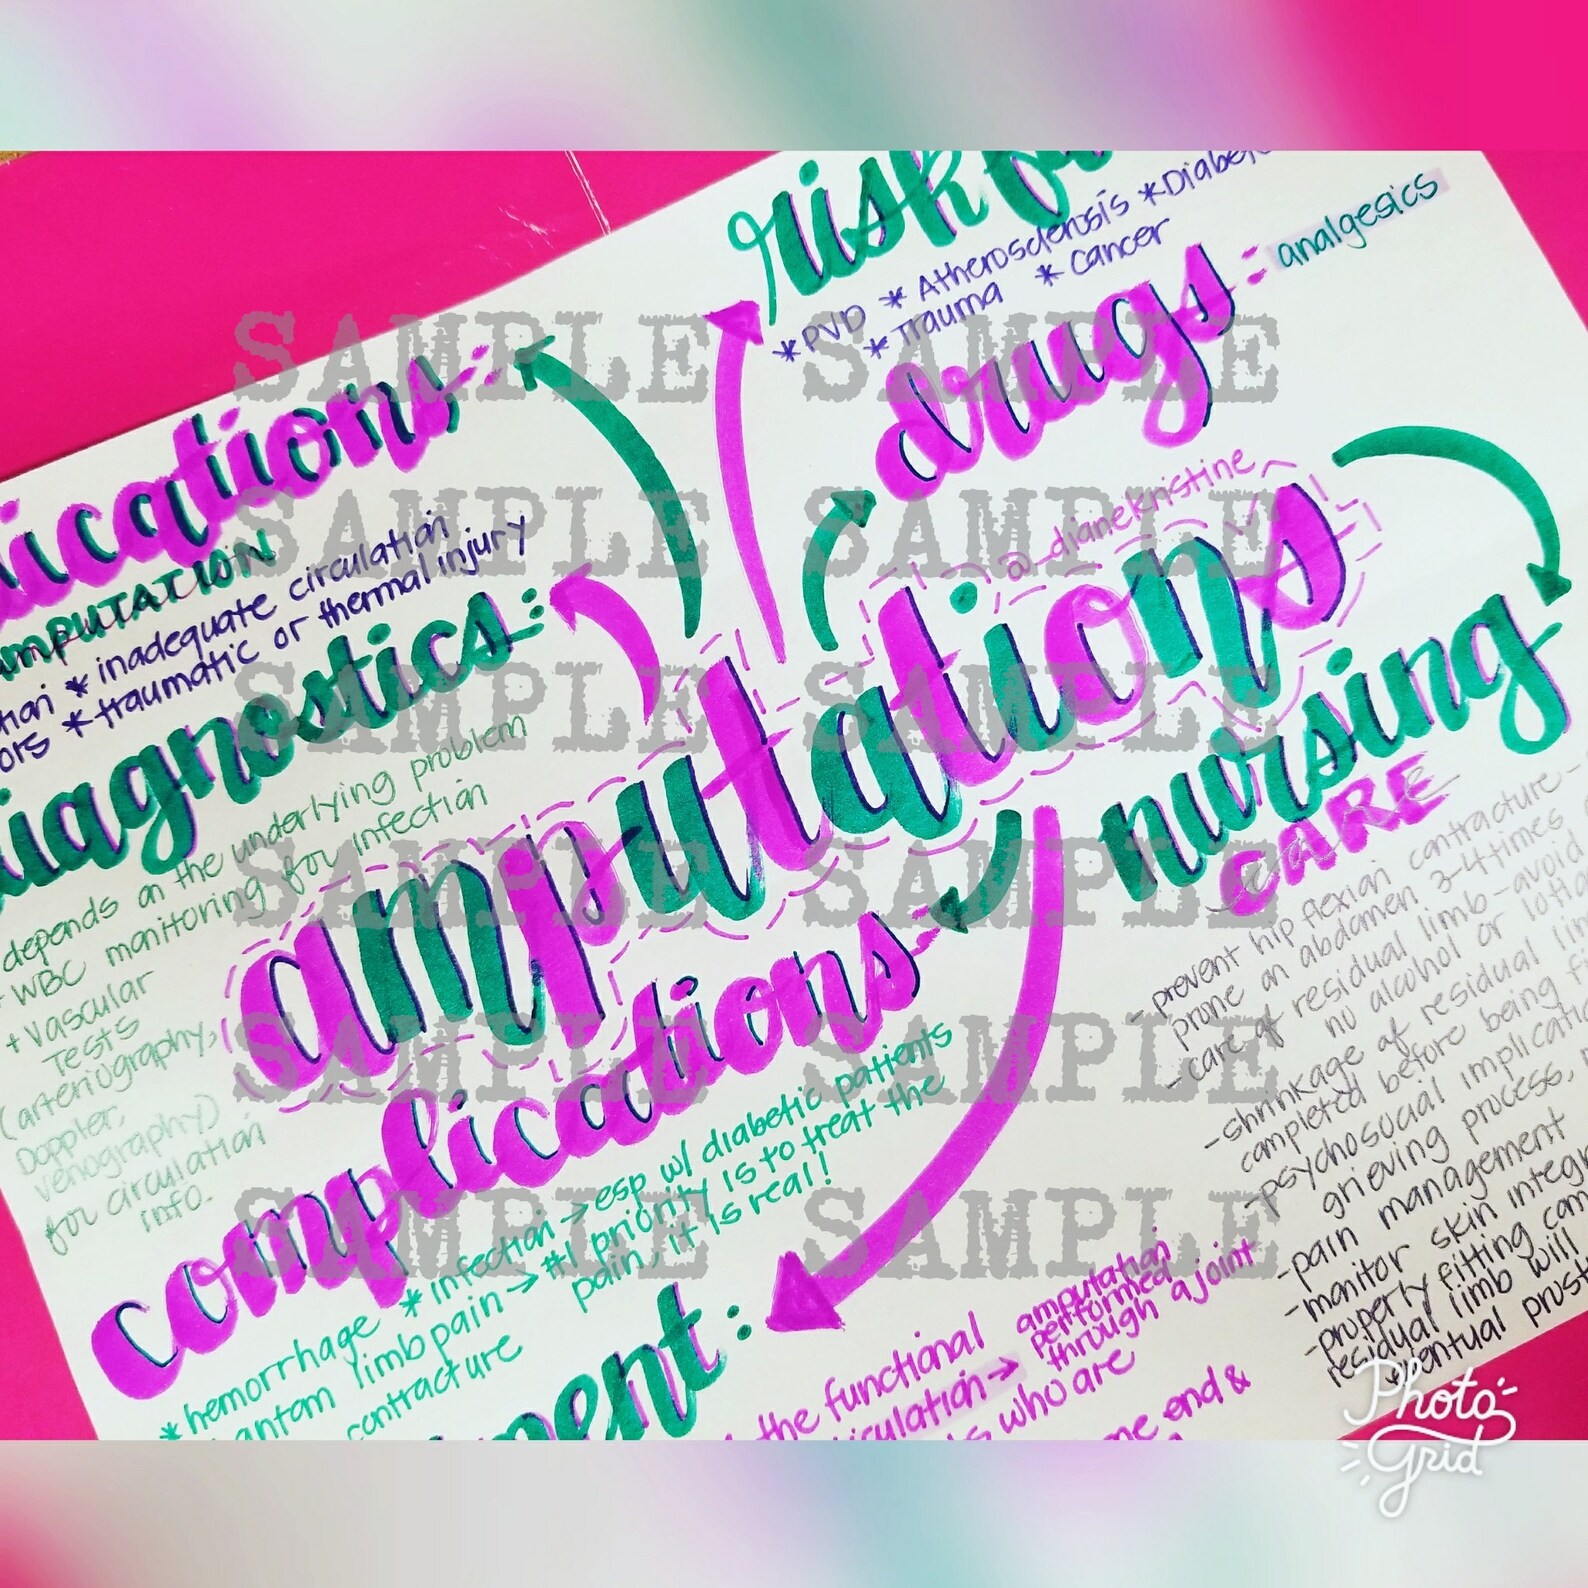 risk for
*PVD * Atherosclerosis *Diabet
* Trauma * cancer
drugs: analgesics
ications:
AMPUTATION
* inadequate circulation
* traumatic or thermal injury
diagnostics:
depends on the underlying problem
+ WBC monitoring for infection
+ vascular
Tests
(arteriography,
Doppler,
venography)
for circulation
info.
@_dianekristine_
amputations
nursing
CARE
- prevent hip flexion contracture -
prone on abdomen 3-4 times
- care of residual limb - avoid
no alcohol or
- shrinkage of residual
completed before being
- psychosocial
grieving process,
- pain management
- monitor skin
- properly fitting
residual limb will
eventual
complications:
* hemorrhage * infection → esp w/ diabetic patients
limb pain → #1 priority is to treat the
pain, it is real!
contracture
ment:
the functional
→ amputation
performed
through a joint
who are
end &
SAMPLE SAMPLE
SAMPLE SAMPLE
SAMPLE SAMPLE
SAMPLE SAMPLE
SAMPLE SAMPLE
SAMPLE SAMPLE
Photo
Grid